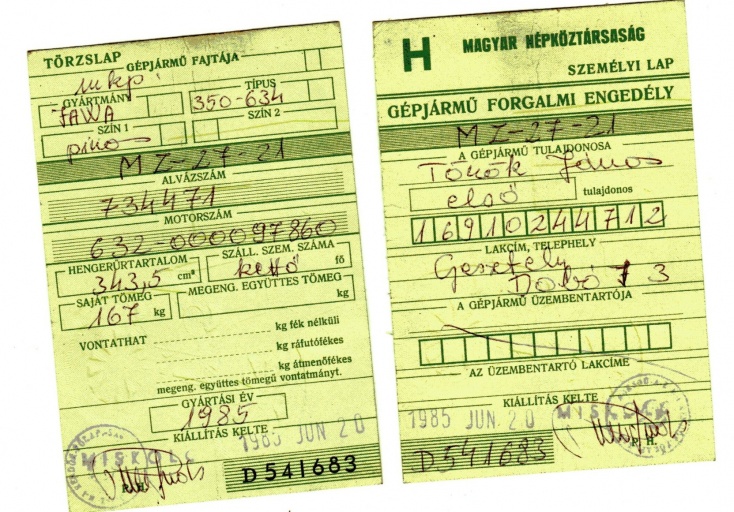 TÖRZSLAP GÉPJÁRMŰ FAJTÁJA
mkp.
GYÁRTMÁNY TÍPUS
JAWA 350-634
SZÍN 1 SZÍN 2
piros
MZ-27-21
ALVÁZSZÁM
734471
MOTORSZÁM
632-000097860
HENGERŰRTARTALOM SZÁLL. SZEM. SZÁMA
343,5 cm³ kettő fő
SAJÁT TÖMEG MEGENG. EGYÜTTES TÖMEG
167 kg kg
VONTATHAT kg fék nélküli
kg ráfutófékes
kg átmenőfékes
megeng. együttes tömegű vontatmányt.
GYÁRTÁSI ÉV
1985
KIÁLLÍTÁS KELTE
1985 JUN 20
MISKOLC
P. H.
D 541683
H MAGYAR NÉPKÖZTÁRSASÁG
SZEMÉLYI LAP
GÉPJÁRMŰ FORGALMI ENGEDÉLY
MZ-27-21
A GÉPJÁRMŰ TULAJDONOSA
Török János
első tulajdonos
16910244712
LAKCÍM, TELEPHELY
Gesztely
Dobó 3
A GÉPJÁRMŰ ÜZEMBENTARTÓJA
AZ ÜZEMBENTARTÓ LAKCÍME
KIÁLLÍTÁS KELTE
1985 JUN 20 MISKOLC
D541683
P. H.